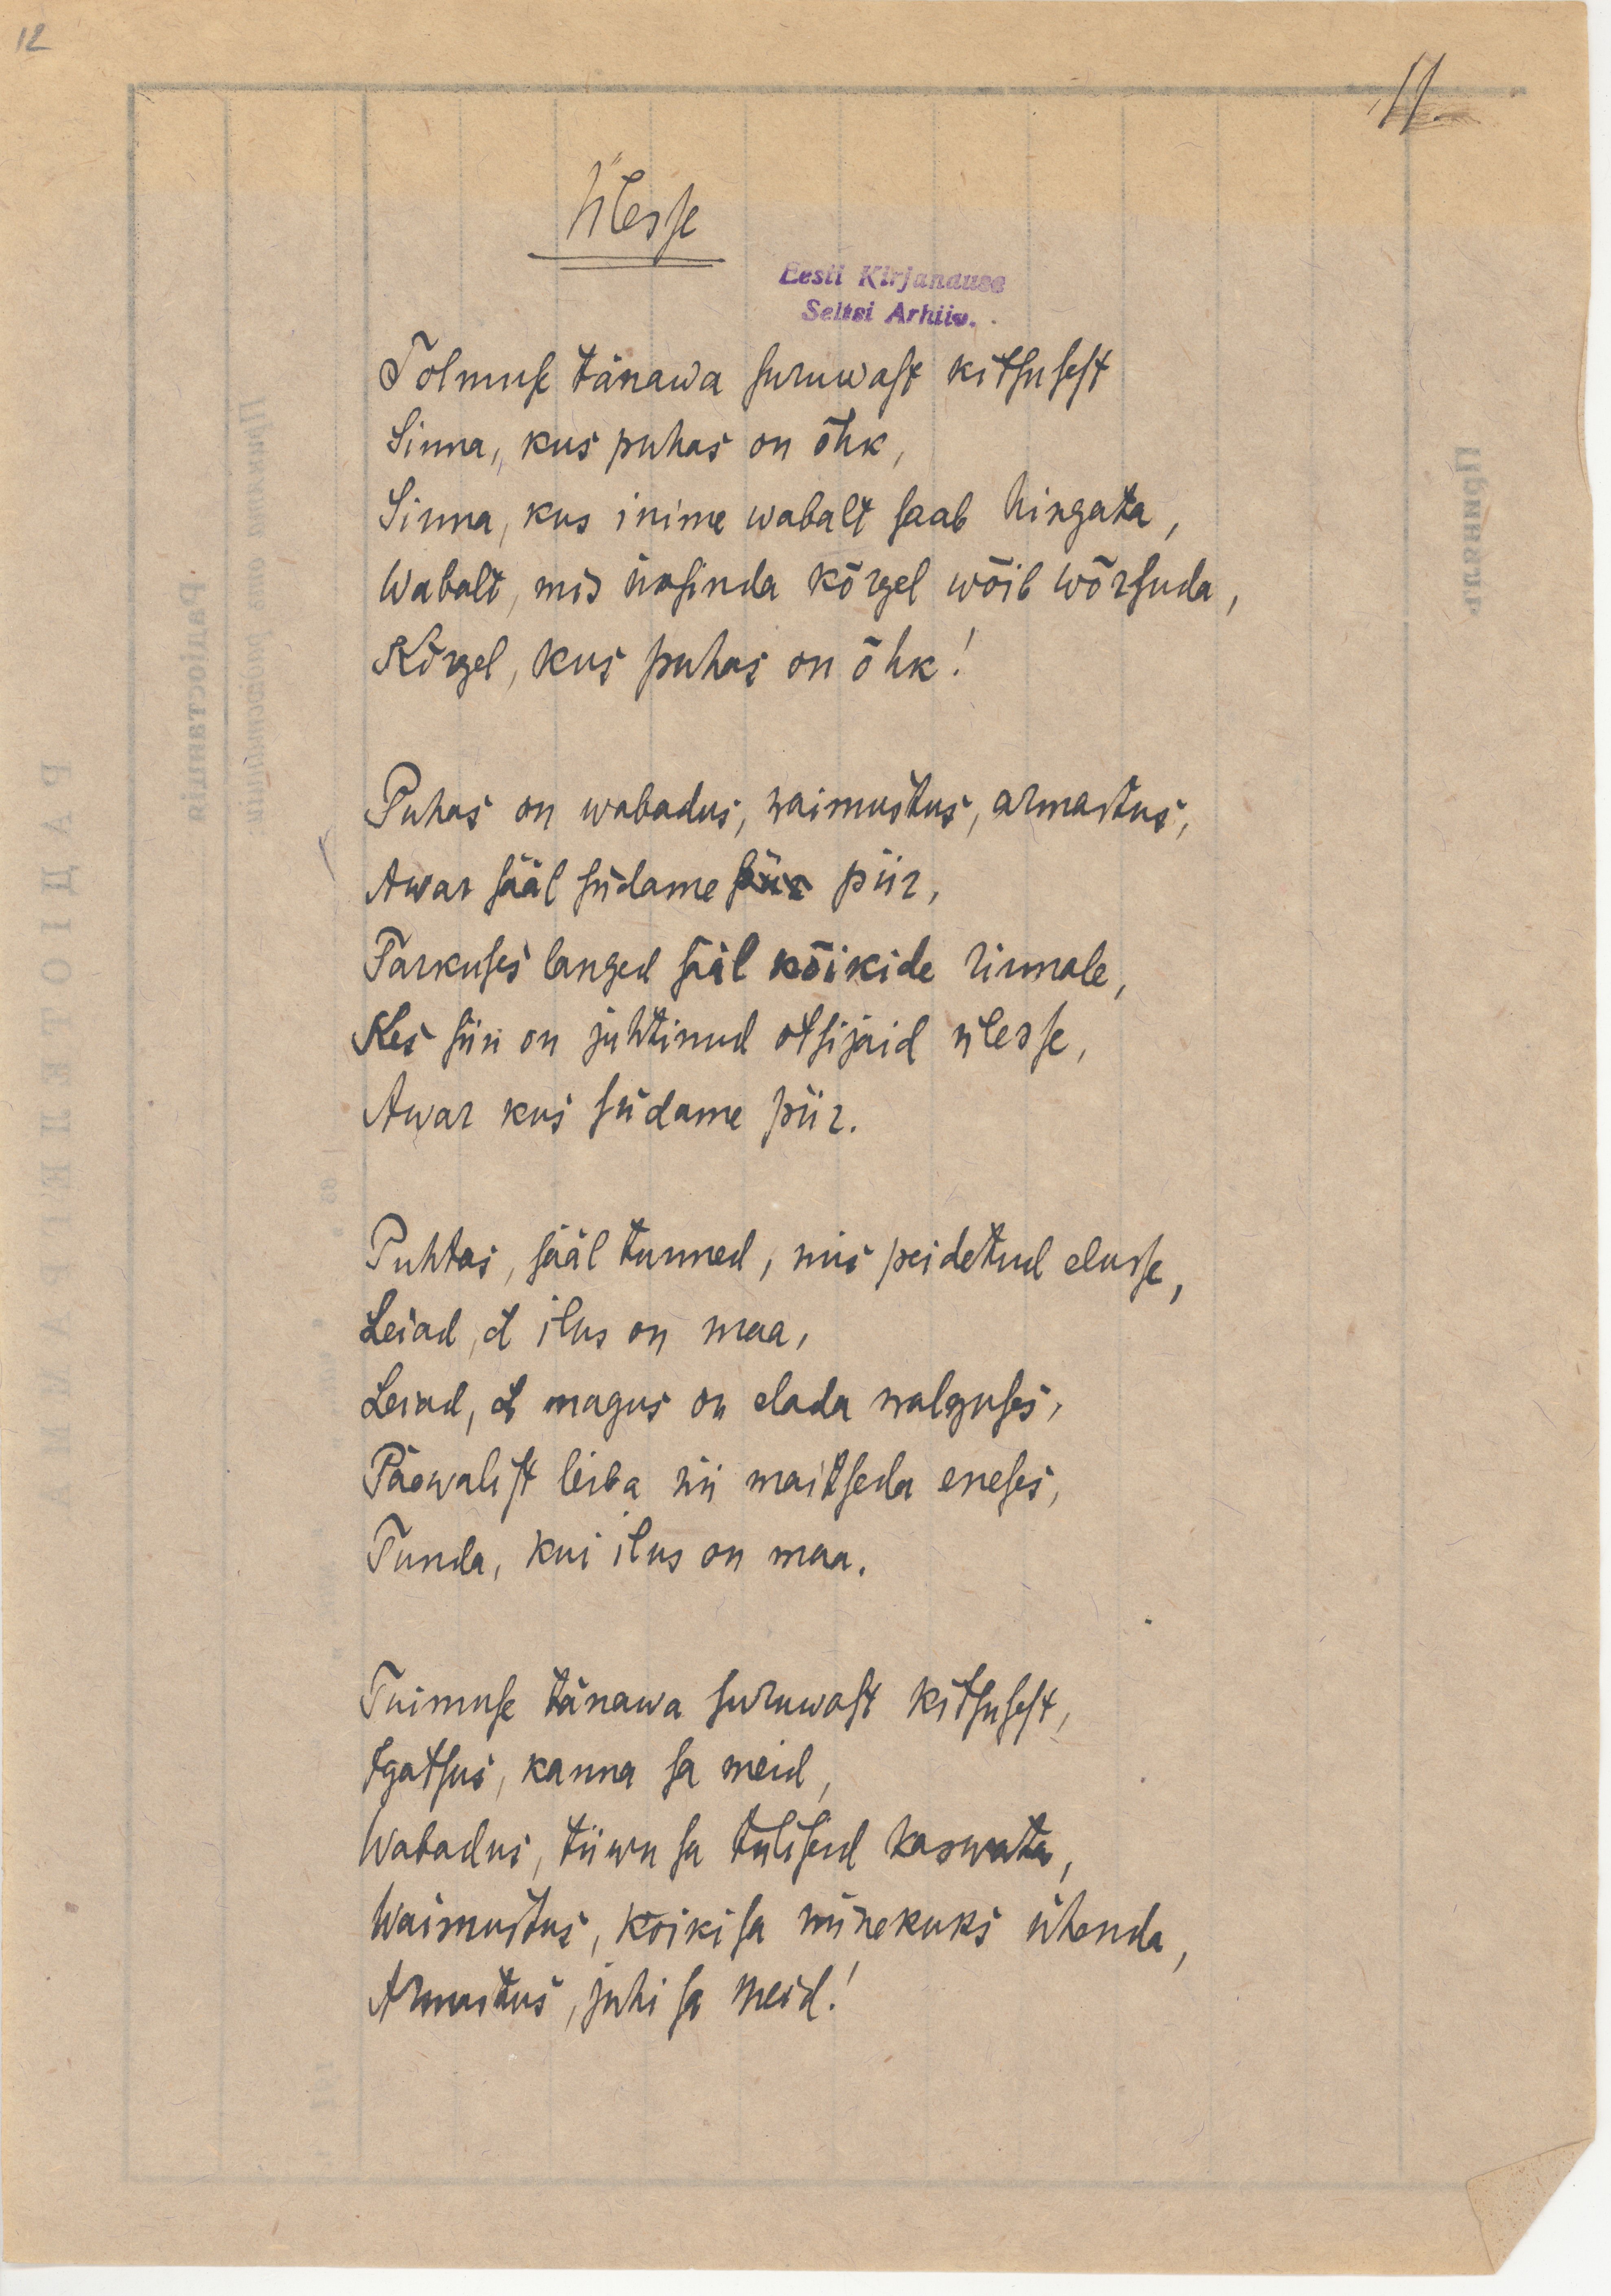 12
11.
Ülesse
Eesti Kirjanduse
Seltsi Arhiiv.
Tolmuse tänawa suruwast kitsusest
Sinna, kus puhas on õhk,
Sinna, kus inime wabalt saab hingata,
Wabalt, mis üksinda kõrgel wõib wõrsuda,
Kõrgel, kus puhas on õhk!
Puhas on wabadus, waimustus, armastus,
Awar sääl südame piir,
Tarkuses langed sääl kõikide rinnale,
Kes siin on juhtinud otsijaid ülesse,
Awar kus südame piir.
Puhtas, sääl tunned, mis peidetud elusse,
Leiad, et ilus on maa,
Leiad, et magus on elada walguses,
Päewalist leiba nii maitseda eneses,
Tunda, kui ilus on maa.
Tuimuse tänawa suruwast kitsusest,
Igatsus, kanna sa meid,
Wabadus, tiiwu sa tuliseid kaswata,
Waimustus, kõiki sa minekuks ühenda,
Armastus, juhi sa meid!
РАДІОТЕЛЕГРАММА
Радіостанція